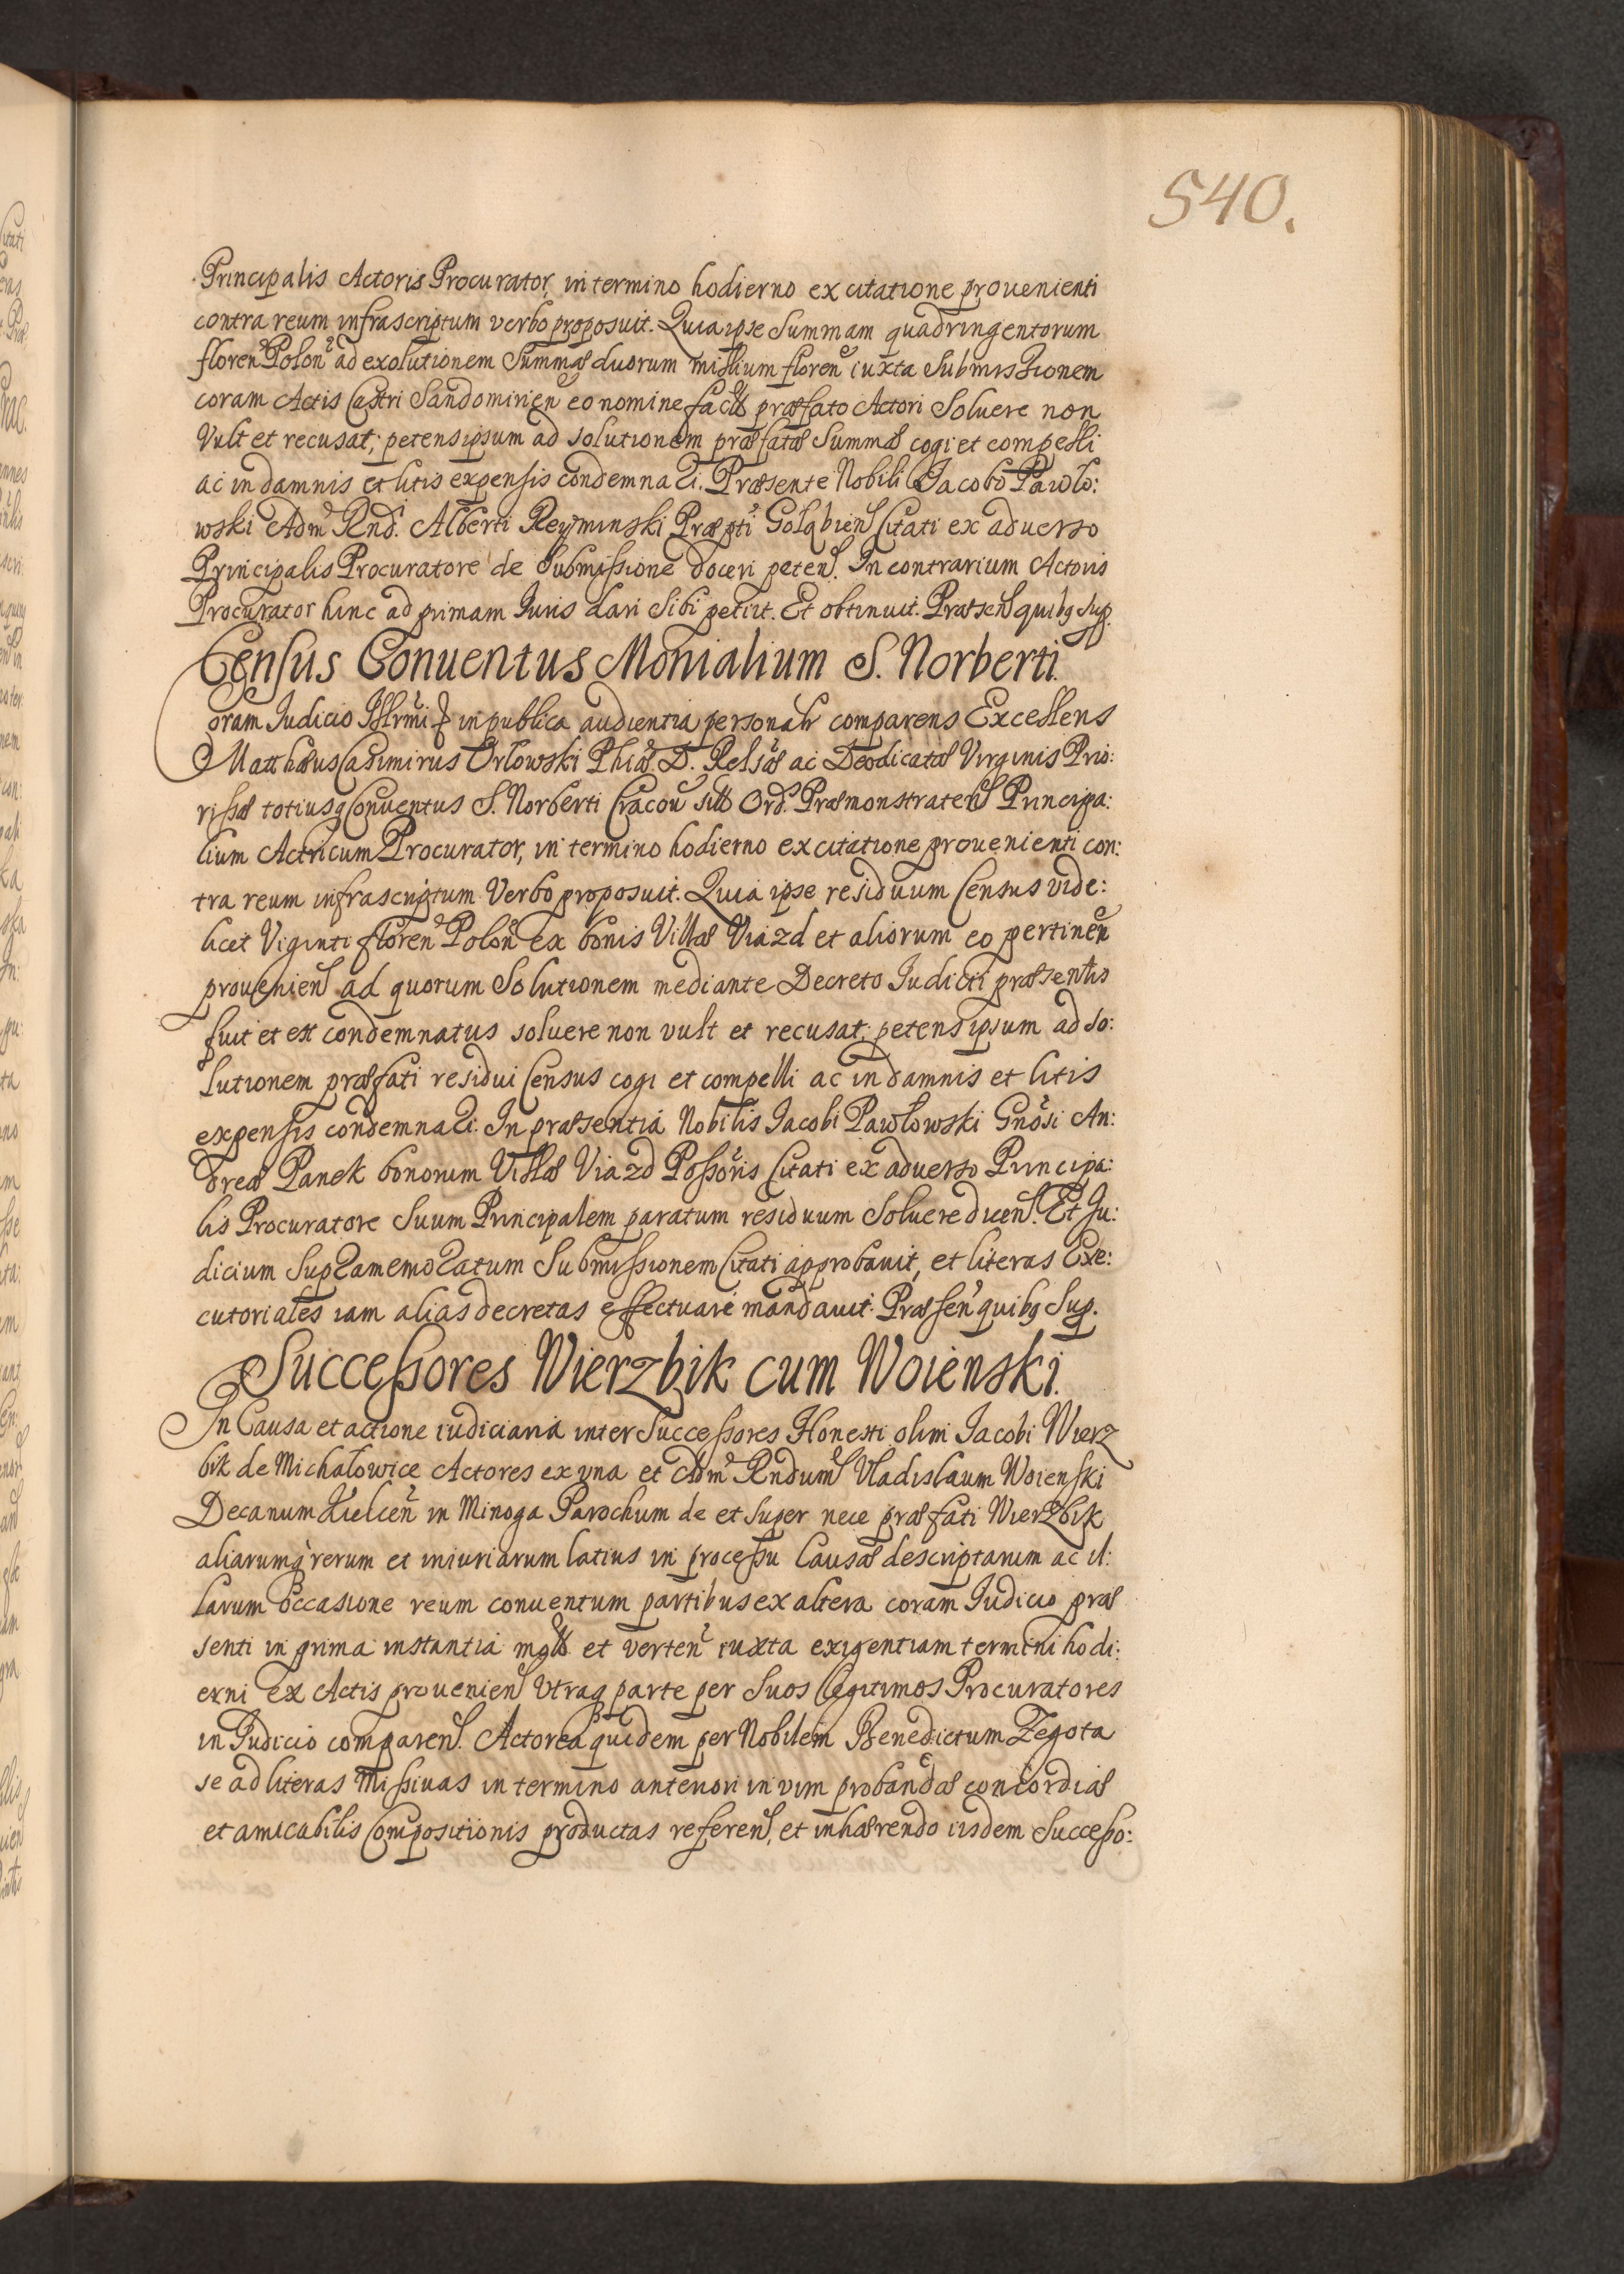 540.
Principalis Actoris Procurator, in termino hodierno ex citatione prouenienti
contra reum infrascriptum verbo proposuit. Quia ipse Summam quadringentorum
floren Polon ad exolutionem Summæ duorum millium floren iuxta Submissionem
coram Actis Castri Sandomirien eo nomine fact præfato Actori Soluere non
Vult et recusat; petens ipsum ad solutionem præfatæ Summæ cogi et compelli
ac in damnis et litis expensis condemnari. Præsente Nobili Jacobo Pawło:
wski Adm Rnd. Alberti Reyminski Præpti Gołąbien Citati ex aduerso
Principalis Procuratore de Submissione doceri peten. In contrarium Actoris
Procurator hinc ad primam Juris dari Sibi petiit. Et obtinuit. Præsen quibq Sup.
Census Conuentus Monialium S. Norberti.
Coram Judicio Illrmi in publica audientia personalr comparens Excellens
Matthæus Casimirus Orłowski Phiæ D. Relsæ ac Deodicatæ Virginis Prio:
rissæ totiusq Conuentus S. Norberti Cracou sitt Ord. Præmonstraten Principa:
lium Actricum Procurator, in termino hodierno ex citatione prouenienti con:
tra reum infrascriptum Verbo proposuit. Quia ipse residuum Census vide:
licet Viginti floren Polon ex bonis Villæ Viazd et aliorum eo pertinen
prouenien ad quorum Solutionem mediante Decreto Judicii præsentis
fuit et est condemnatus soluere non vult et recusat; petens ipsum ad so:
lutionem præfati residui Census cogi et compelli ac in damnis et litis
expensis condemnari. In præsentia Nobilis Jacobi Pawłowski Gnosi An:
dreæ Panek bonorum Villæ Viazd Possoris Citati ex aduerso Principa:
lis Procuratore Suum Principalem paratum residuum Soluere dicen. Et Ju:
dicium Supramemoratum Submissionem Citati approbauit, et literas Exe:
cutoriales iam alias decretas effectuari mandauit. Præsen quibq Sup.
Successores Wierzbik cum Woienski.
In Causa et actione iudiciaria inter Successores Honesti olim Jacobi Wierz
bik de Michałowice Actores ex vna et Adm Rndum Vladislaum Woienski
Decanum Kielcen in Minoga Parochum de et Super nece præfati Wierzbik
aliarumq rerum et iniuriarum latius in processu Causæ descriptarum ac il:
larum occasione reum conuentum partibus ex altera coram Judicio præ
senti in prima instantia mott et verten iuxta exigentiam termini hodi:
erni ex Actis prouenien Vtraq parte per Suos legitimos Procuratores
in Judicio comparen. Actorea quidem per Nobilem Benedictum Zegota
se ad literas Missiuas in termino anteriori in vim probandæ concordiæ
et amicabilis Compositionis productas referen, et inhærendo iisdem Successo: